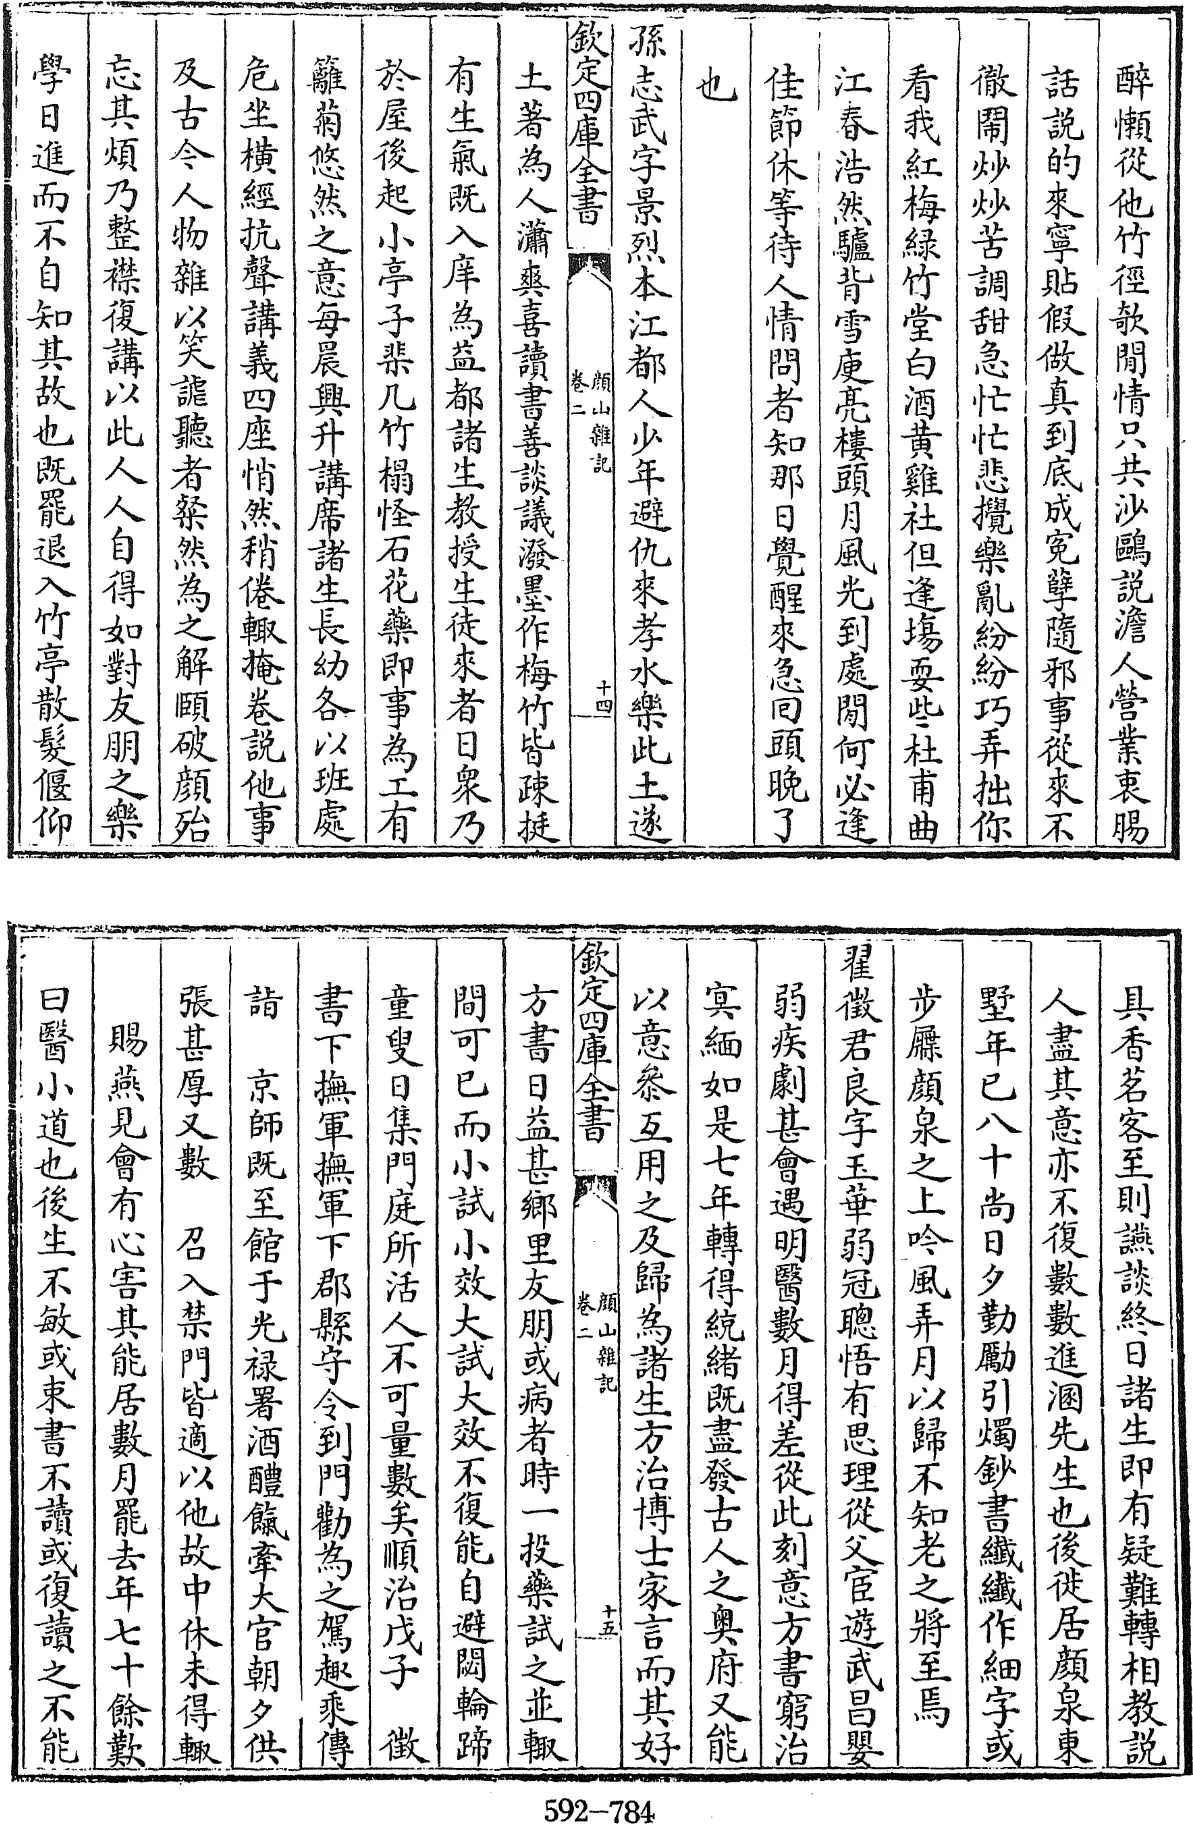 醉懶從他竹徑欹閒情只共沙鷗説澹人營業衷腸
話説的來寧貼假做真到底成寃孽隨邪事從來不
徹鬧炒炒苦調甜急忙忙悲攪樂亂紛紛巧弄拙你
看我紅梅綠竹堂白酒黄雞社但逢塲耍些杜甫曲
江春浩然驢背雪庾亮樓頭月風光到處閒何必逢
佳節休等待人情問者知那日覺醒來急回頭晚了
也
孫志武字景烈本江都人少年避仇來孝水樂此土遂
欽定四庫全書
顔山雜記
卷二
十四
土著為人瀟爽喜讀書善談議潑墨作梅竹皆疎挺
有生氣既入庠為益都諸生教授生徒來者日衆乃
於屋後起小亭子棐几竹榻怪石花藥即事為工有
籬菊悠然之意每晨興升講席諸生長幼各以班處
危坐橫經抗聲講義四座悄然稍倦輙掩卷説他事
及古今人物雜以笑謔聽者粲然為之解頤破顔殆
忘其煩乃整襟復講以此人人自得如對友朋之樂
學日進而不自知其故也既罷退入竹亭散髮偃仰
具香茗客至則讌談終日諸生即有疑難轉相教説
人盡其意亦不復數數進溷先生也後徙居顔泉東
墅年已八十尚日夕勤勵引燭鈔書纎纎作細字或
步屧顔泉之上吟風弄月以歸不知老之將至焉
翟徵君良字玉華弱冠聰悟有思理從父宦遊武昌嬰
弱疾劇甚會遇明醫數月得差從此刻意方書窮治
㝠緬如是七年轉得統緒既盡發古人之奥府又能
以意叅互用之及歸為諸生方治博士家言而其好
欽定四庫全書
顔山雜記
卷二
十五
方書日益甚鄉里友朋或病者時一投藥試之並輙
間可已而小試小效大試大效不復能自避閟輪蹄
童叟日集門庭所活人不可量數矣順治戊子　徵
書下撫軍撫軍下郡縣守令到門勸為之駕趣乘傳
詣　京師既至館于光禄署酒醴餼牽大官朝夕供
張甚厚又數　召入禁門皆適以他故中休未得輙
賜燕見會有心害其能居數月罷去年七十餘歎
曰醫小道也後生不敏或束書不讀或復讀之不能
592-784